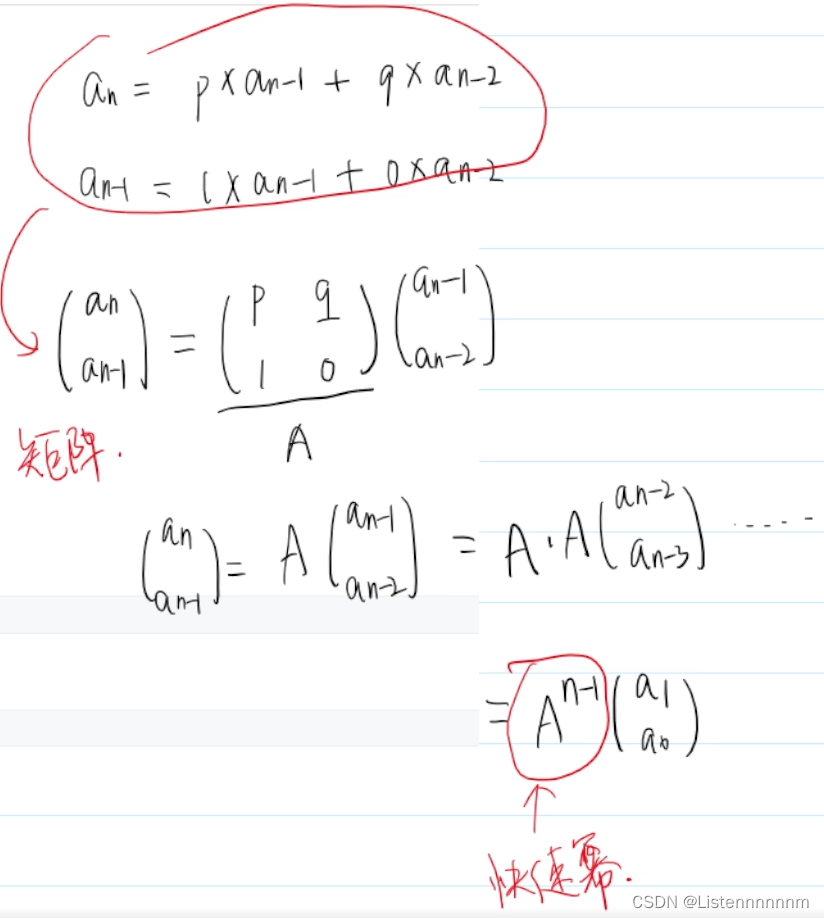 an = p×an-1 + q×an-2
an-1 = 1×an-1 + 0×an-2
(an an-1) = (p q 1 0) (an-1 an-2)
A
矩阵.
(an an-1) = A (an-1 an-2) = A·A (an-2 an-3) .....
= A^n-1 (a1 a0)
快速幂.
CSDN @Listennnnnnm